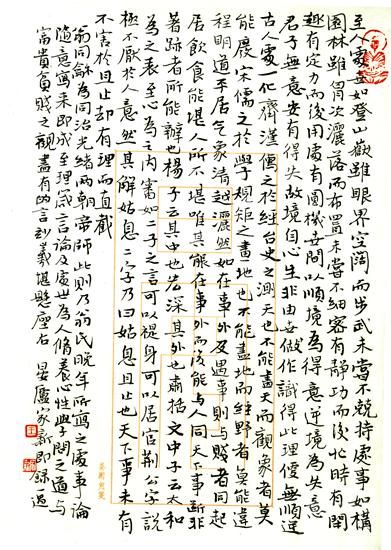 至人處世如登山觀雖眼界空闊而步武未嘗不兢持處事如構
園林雖胃次灑落而布置未嘗不細密有靜功而後忙時有閒
趣有定力而後用處有圓機世間以順境為得意逆境為失意
君子無意安有得失故境自心生非由世做作識得此理便無順逆
古人處一化齊漢儒之於經台史之測天也不能盡天而觀象者莫
能廢宋儒之於學規矩之畫地也不能盡地而經野者莫能違
程明道平居氣象清越灑然如在事外及遇事則與賤者同起
居飲食能堪人所不堪唯其能在事外而後能與人同天下事斷非
著跡者所能辦也楊子云其中也宏深其外也肅括文中子云太和
為之表至心為之內審如二子之言可以禔身可以居官荆公字說
極不厭於人意然其解姑息二字乃曰姑息且止也天下事未有
不害於且止却有理而直截
翁同龢為同治光緒兩朝帝師此則乃翁氏晚年所寫之處事論
隨意寫來即成至理箴言論及處世為人脩養心性學問之道與
富貴貧賤之觀盡有納言妙義堪懸座右 晏廬家新即錄過